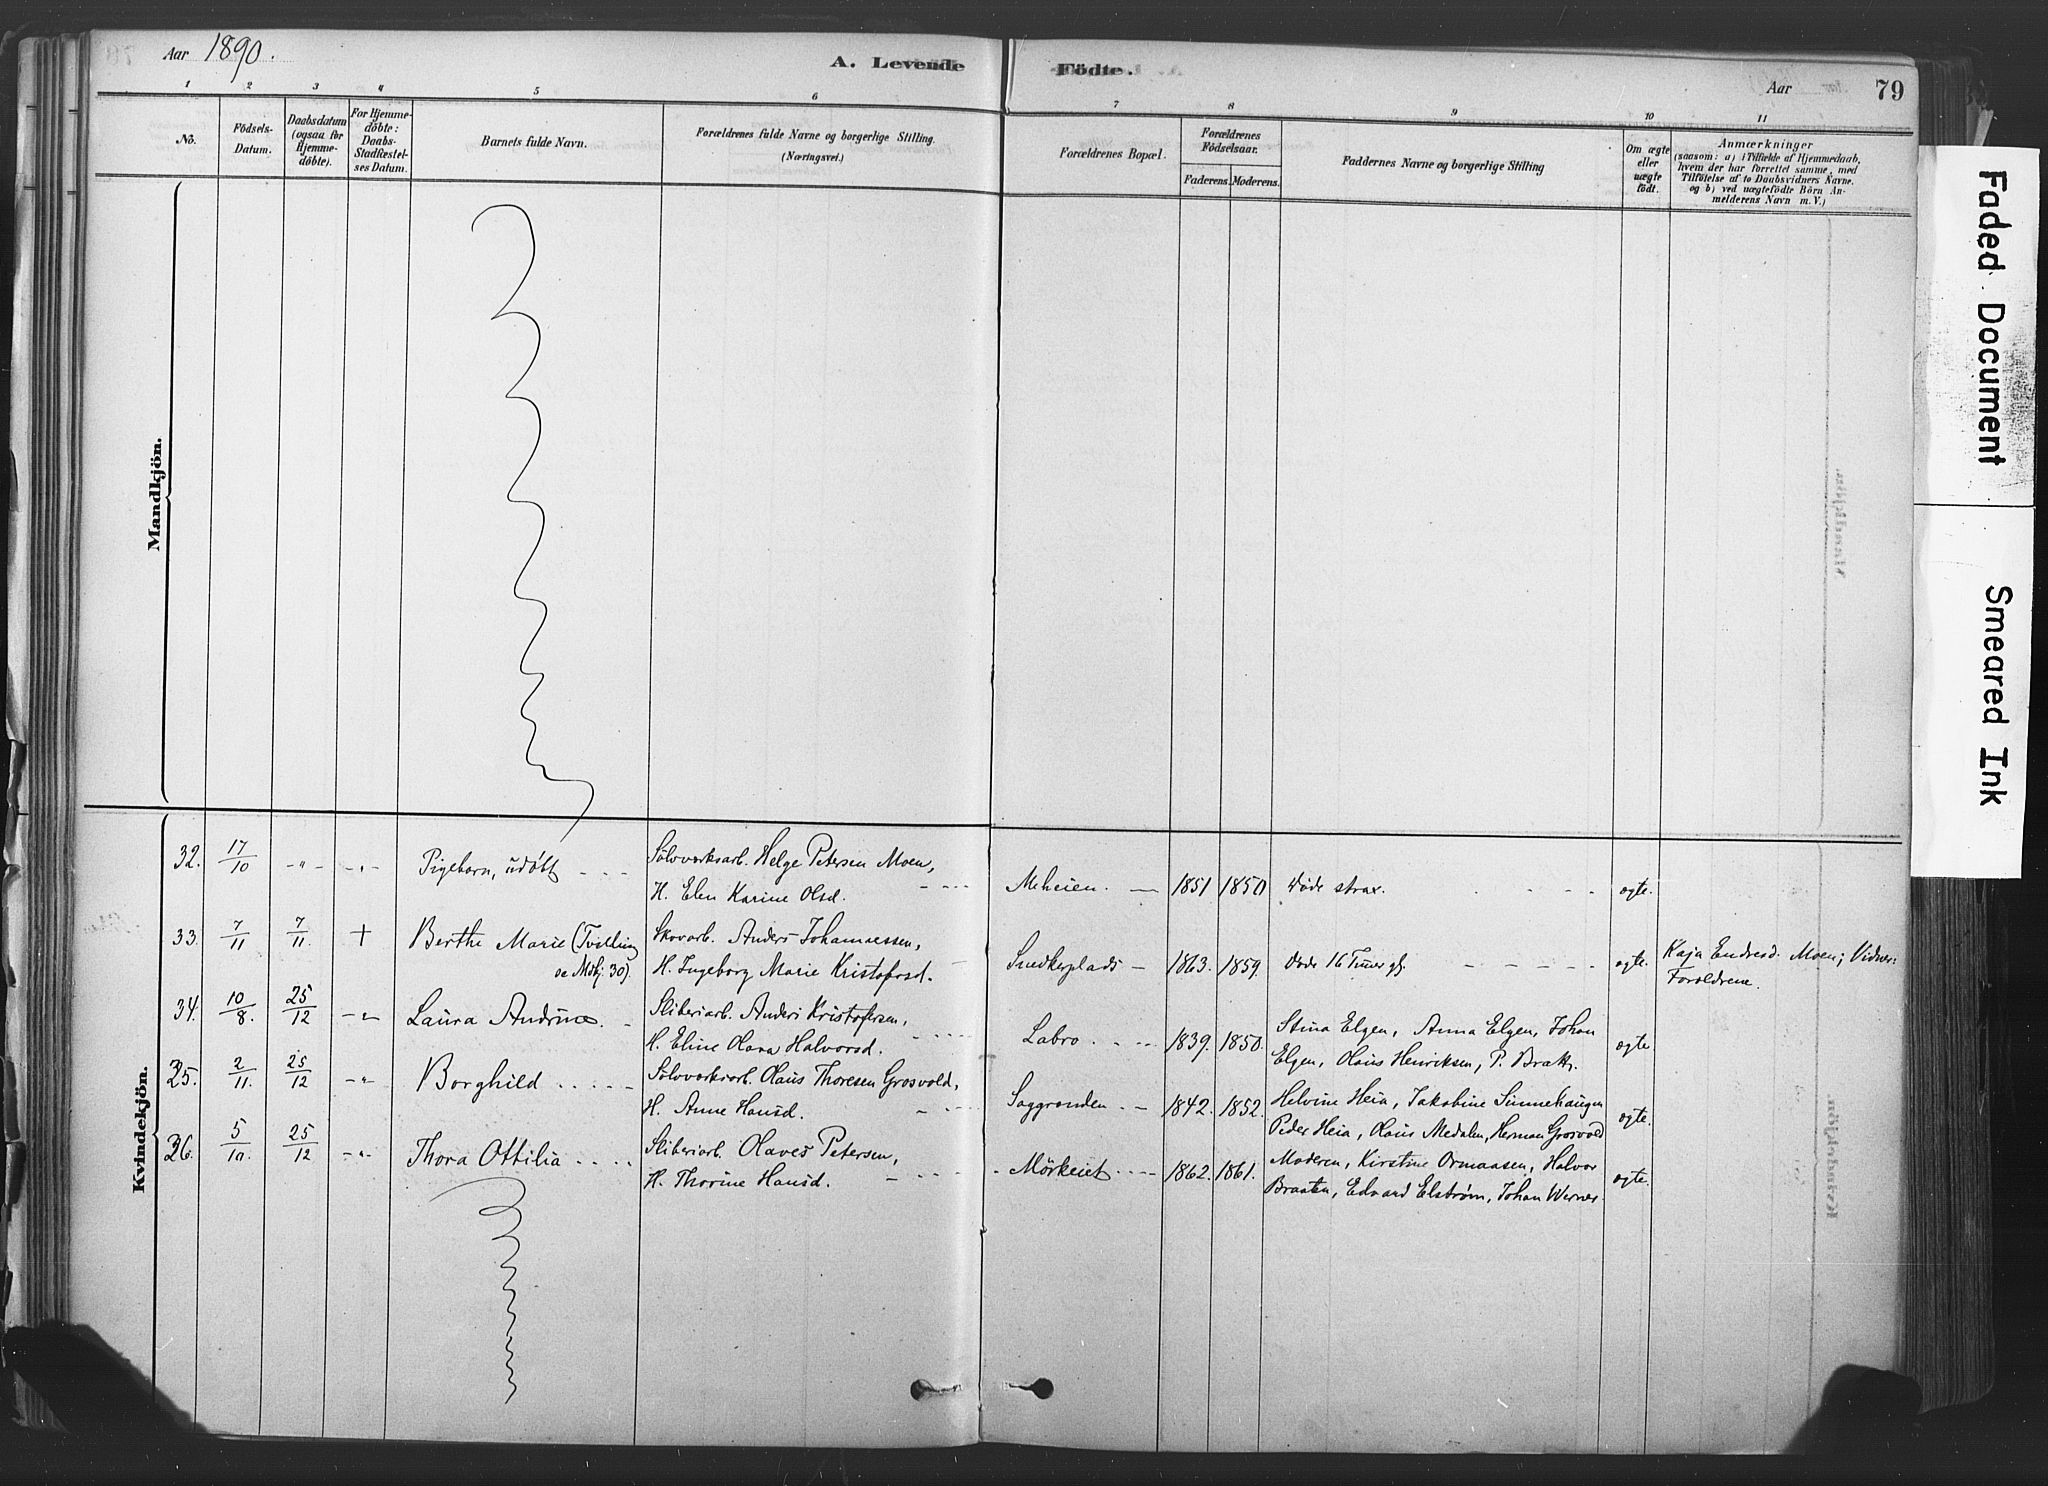 Aar 1890.
A. Levende Födte.
Aar
79
1 2 3 4 5 6 7 8 9 10 11
No.
Födsels-Datum.
Daabsdatum (ogsaa for Hjemme-döbte).
For Hjemme-döbte: Daabs-Stadfæstel-ses Datum.
Barnets fulde Navn.
Forældrenes fulde Navne og borgerlige Stilling.
(Næringsvei.)
Forældrenes Bopæl.
Forældrenes Födselsaar.
Faderens. Moderens.
Faddernes Navne og borgerlige Stilling
Om ægte eller uægte födt.
Anmærkninger
(saasom: a) i Tilfælde af Hjemmedaab,
hvem der har forrettet samme, med
Tilföielse af to Daabsvidners Navne.
og b) ved uægtefödte Börn An-
melderens Navn m.V.)
Mandkjön.
Kvindekjön.
32. 17/10 -"- -"- Pigebarn, udøbt - - - Sölvverksarb. Helge Petersen Moen,
H. Elen Karine Olsd. - - - Meheien. — 1851 1850 Døde strax. - - - - ægte.
33. 7/11 7/11. + Berthe Marie (Tvilling Skovarb. Anders Johannessen,
se Mdkj: 30). H. Ingeborg Marie Kristofersd. — Snedkerplads — 1863. 1859. Døde 16 Timer gl. - - - - ægte. Kaja Endresd. Moen; Vidner:
Forældrene.
34. 10/8. 25/12 -"- Laura Andrine. - Sliberiarb. Anders Kristofersen,
H. Eline Olava Halvorsd. - - - - Labro. - - - 1839. 1850. Stina Elgen, Anna Elgen, Johan
Elgen, Olaus Henriksen, P. Brakk. ægte
35. 2/11. 25/12 -"- Borghild . . . . . Sölvverksarb. Olaus Thoresen Grosvold,
H. Anne Hansd. - - - - Saggrenden. - - 1842. 1852. Helvine Heia, Jakobine Simmehaugen
Peder Heia, Olaus Medalen, Herman Grosvold ægte.
36. 5/10. 25/12 -"- Thora Ottilia . . . . Sliberiarb. Olaves Petersen,
H. Thorine Hansd. - - - - Mörkeiet - - - - 1862. 1861. Moderen, Kirstine Ormaasen, Halvor
Braaten, Edvard Elström, Johan Werner. ægte.
Faded Document
Smeared Ink